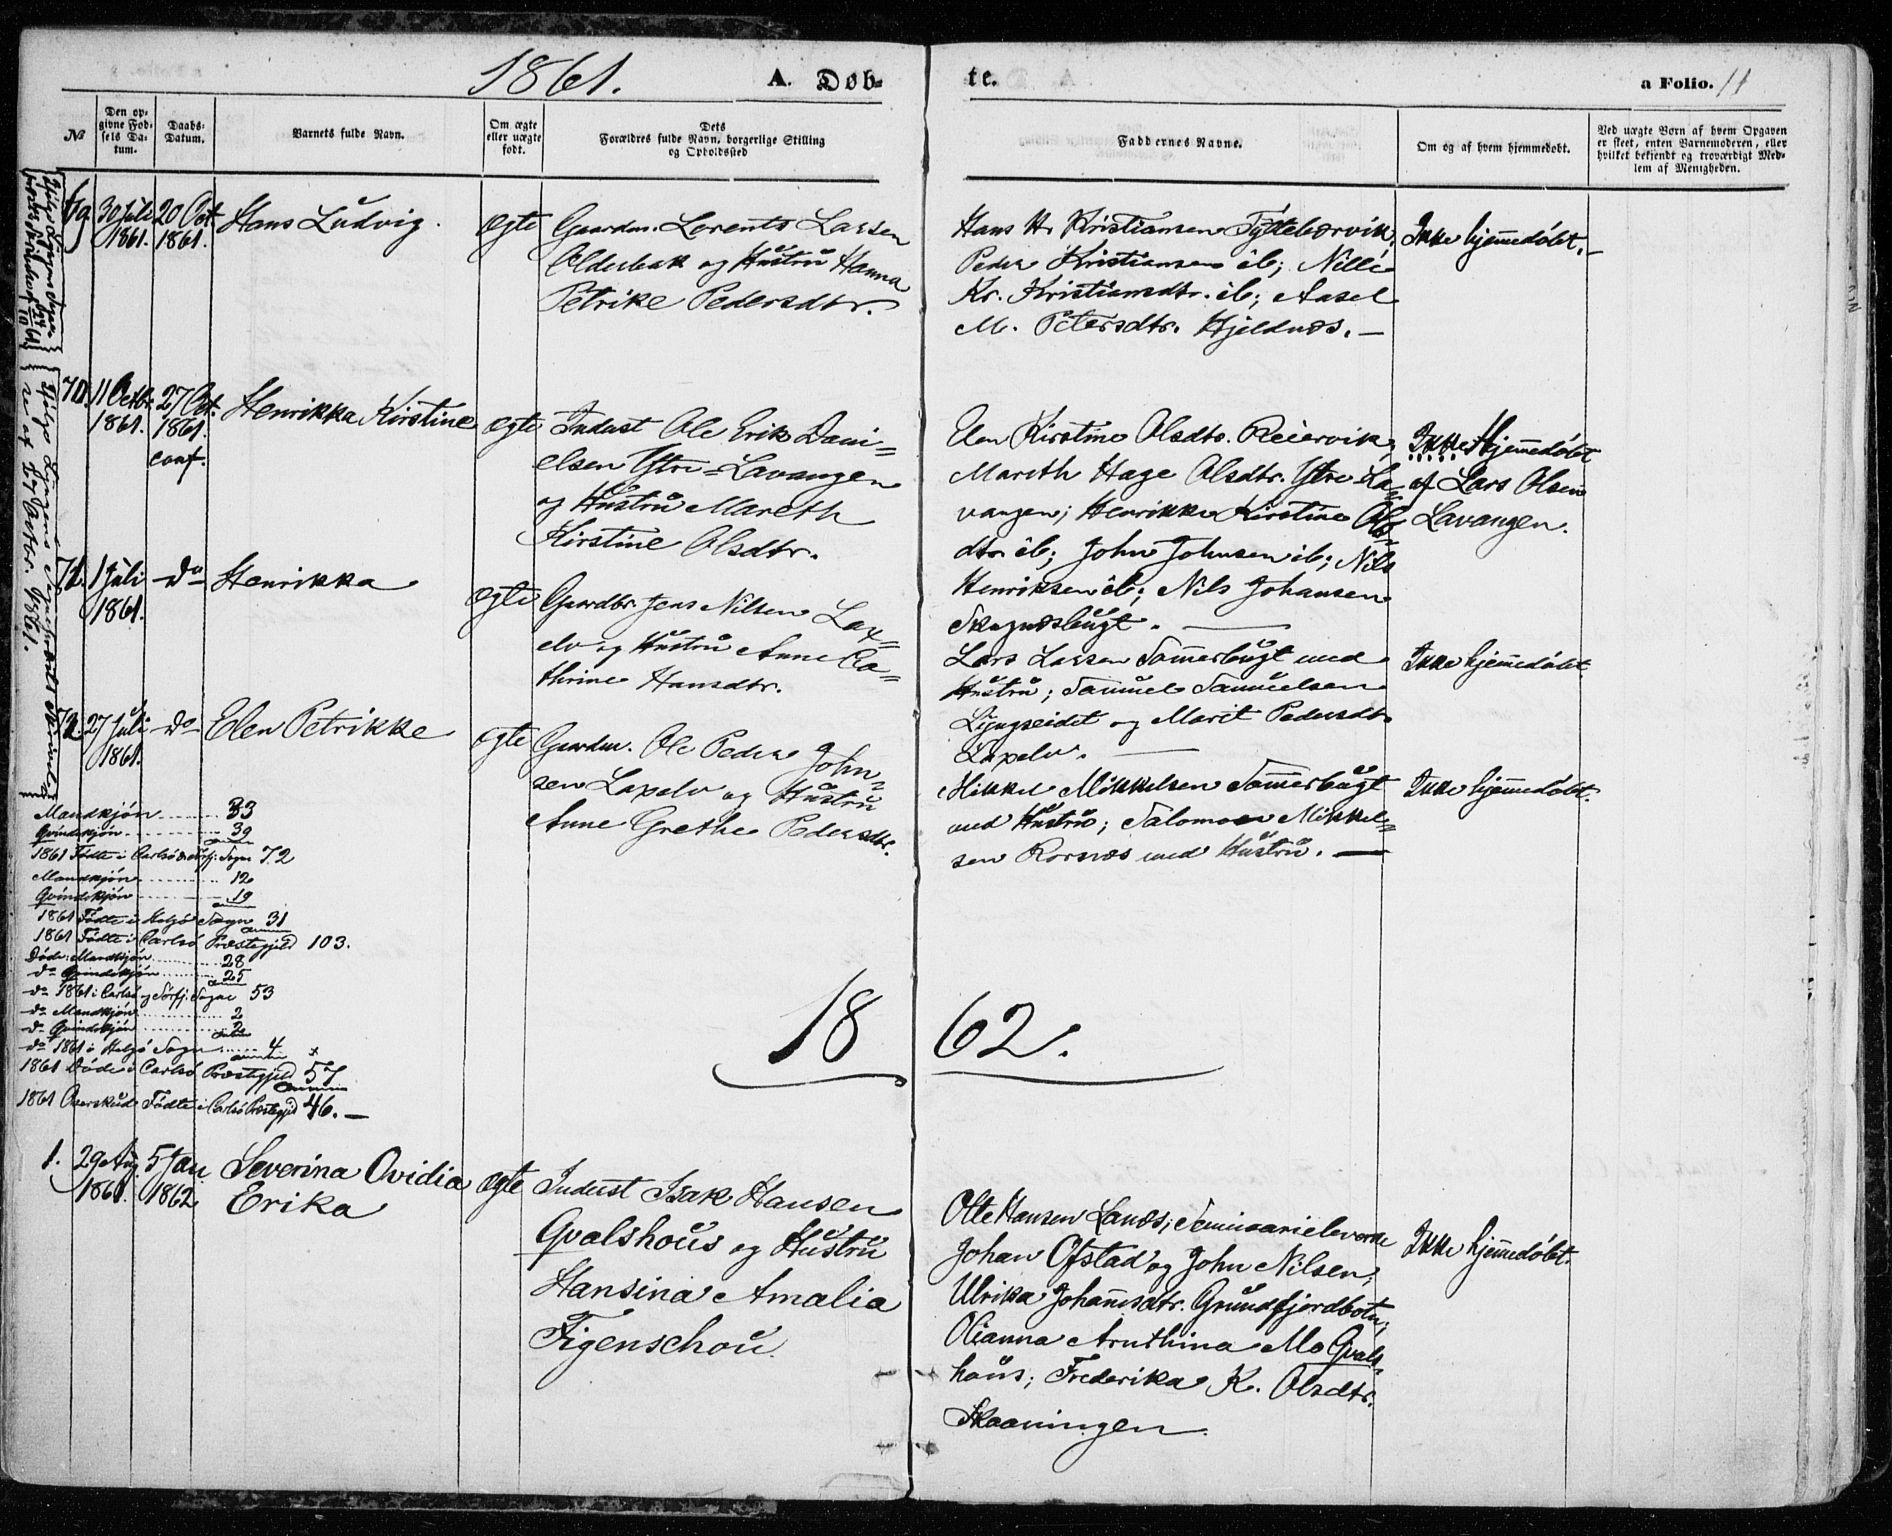 1861.
A. Døb-
te.
a Folio. 11
№
Den op-
givne Fød-
sels Da-
tum.
Daabs-
Datum.
Barnets fulde Navn.
Om ægte
eller uægte
født.
Dets
Forældres fulde Navn, borgerlige Stilling
og Opholdssted
Faddernes Navne.
Om og af hvem hjemmedøbt.
Ved uægte Børn af hvem Opgaven
er skeet, enten Barnemoderen, eller
hvilket bekjendt og troværdigt Med-
lem af Menigheden.
69. 30 Juli 1861. 20 Oct. 1861. Hans Ludvig. ægte
Gaardm. Lorents Larsen
Olderbak og Hustrü Hanna
Petrike Pedersdtr.
Hans H. Kristiansen Tyttebærvik,
Peder Kristiansen ib; Nille
Kr. Kristiansdtr. ib; Aasel
M. Petersdtr. Hjeldnæs. —
Ikke hjem̄edøbt. —
70. 11 Octbr. 1861. 27 Oct. 1861. conf. Henrikka Kirstine ægte
Indust Ole Erik Dani-
elsen Ytre-Lavangen
og Hustrü Mareth
Kirstine Olsdtr.
Elen Kirstine Olsdtr. Reiervik,
Mareth Hage Olsdtr. Ytre La-
vangen; Henrikke Kirstine Ols-
dtr ib; John Johnsen ib; Nils
Henriksen ib; Nils Johansen
Skognæsbugt. —
Ikke Hjem̄edøbt
af Lars Olsen
Lavangen.
71. 1 Juli 1861. Do Henrikka ægte
Gaardbr. Jens Nilsen Lax-
elv og Hustrü Anne Ca-
thrine Hansdtr.
Lars Larsen Som̄erbügt med
Hüstrü; Samüel Samüelsen
Lyngseidet og Marit Pedersdt.
Laxelv. —
Ikke hjem̄edøbt
72. 27 Juli 1861. Do Elen Petrikke ægte
Gaardm. Ole Peder John-
sen Laxelv og Hustrü
Anne Grethe Pedersdtr.
Mikkel Mikkelsen Som̄erbügt
med Hustrü; Salomon Mikkel-
sen Rornæs med Hüstrü. —
Ikke hjem̄edøbt.
Mandkjøn ........ 33
Qvindekjøn ........ 39
1861 Fødte i Carlsö & Sørfj: Sogn 72
Mandkjøn ........ 12
Qvindekjøn ........ 19
1861 Fødte i Helgö Sogn 31
1861 Fødte i Carlsö Præstegjeld 103.
Døde: Mandkjøn ........ 28
Do Qvindekjøn ........ 25
Do 1861 i Carlsö og Sørfj. Sogne 53
Do Mandkjøn ........ 2
Do Qvindekjøn ........ 2
Do 1861 i Helgö Sogn ...... 4
1861 Døde i Carlsö Præstegjeld 57
1861 Overskud Fødte i Carlsö Præstegjeld 46. —
18 62.
1. 29 Aug 1861. 5 Jan 1862 Severina Ovidia
Erika ægte
Indust Isak Hansen
Qvalshoüs og Hüstrü
Hansina Amalia
Figenschoü.
Olle Hansen Lanæs; Seminarieleverne
Johan Ofstad og John Nilsen;
Ulrika Johan̄esdtr. Grundfjordbotn;
Olianna Arnthina Mo Qvals-
haüs; Frederika K. Olsdtr.
Skaaningen.
Ikke hjem̄edøbt.